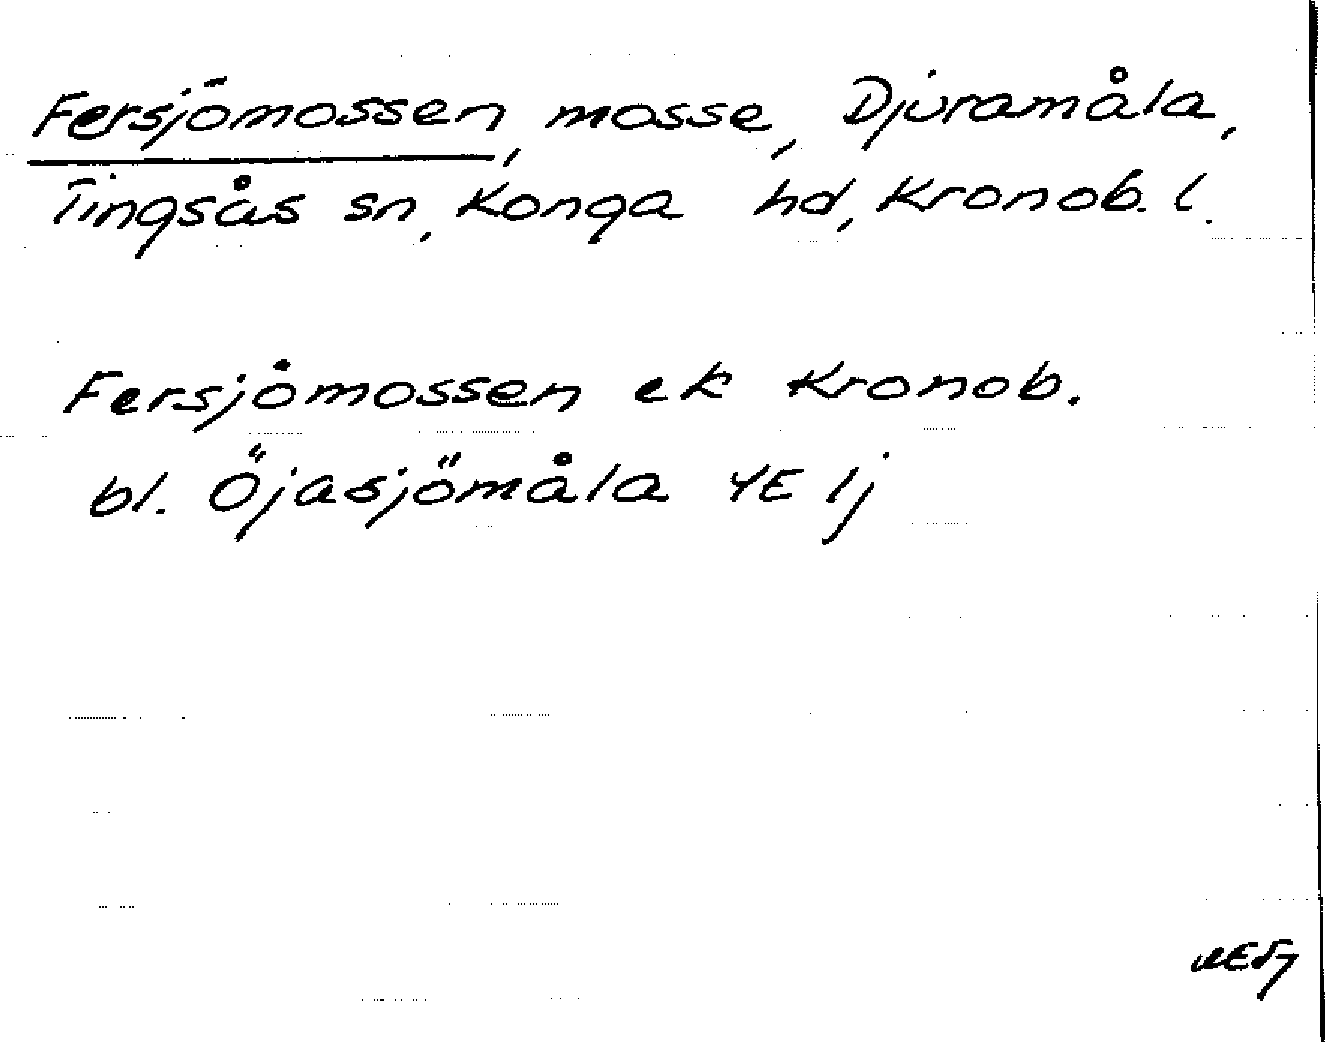 Fersjömossen, mosse, Djuramåla,
Tingsås sn, Konga hd, Kronob. l.
Fersjömossen ek Kronob.
bl. Öjasjömåla 4E 1j